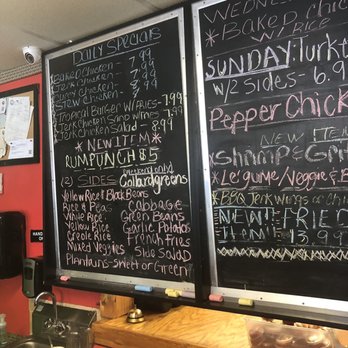 Daily Specials
Baked Chicken - 7.99
Jerk Chicken - 7.99
Curry Chicken - 7.99
Stew Chicken - 8.99
Tropical Burger w/ Fries - 7.99
Jerk Chicken Sand w/ Fries - 7.99
Jerk Chicken Salad - 8.99
*NEW ITEM*
RUM PUNCH $5
(2) SIDES
Weekend only
Collard greens
Yellow Rice & Black Beans
Rice & Peas
Cabbage
White Rice
Green Beans
Yellow Rice
Garlic Potatoes
Creole Rice
French Fries
Mixed Veggies
Side Salad
Plantains - Sweet or Green
WEDNES
*Baked Chic
w/ RICE
SUNDAY: Turk
w/ 2 Sides - 6.9
Pepper Chick
NEW ITEM
*Shrimp & Gr
*Legume/Veggie & B
*BBQ Jerk Wings or Chic
NEW!! FRIED
Item
13.99
HAND